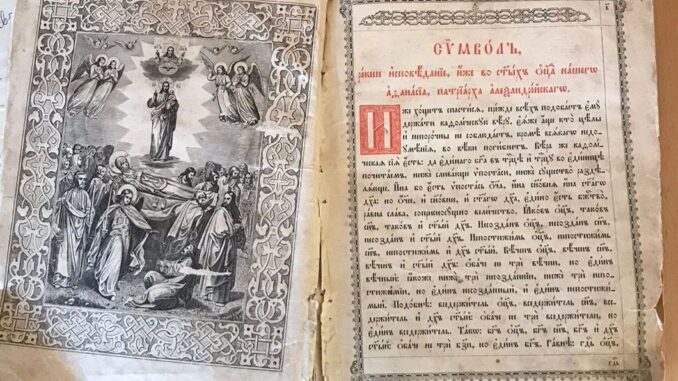 СѶМВО́ЛЪ,
и҆сповѣ́данїе, и҆́же во ст҃ы́хъ ѻ҆ц҃а̀ на́шегѡ
а҆ѳана́сїа, патрїа́рха а҆леѯандрі́йскагѡ.
И́же хо́щетъ спасти́сѧ, пре́жде всѣ́хъ подоба́етъ є҆мꙋ̀
держа́ти каѳоли́ческꙋю вѣ́рꙋ: є҆ѧ́же а҆́ще кто̀ цѣ́лы
и҆ непоро́чны не соблюда́етъ, кромѣ̀ всѧ́кагѡ недо-
ꙋмѣ́нїѧ, во вѣ́ки поги́бнетъ. Вѣ́ра же каѳоли́-
ческаѧ сїѧ̀ є҆́сть: да є҆ди́наго бг҃а въ трⷪ҇цѣ и҆ трⷪ҇цꙋ во є҆ди́ницѣ
почита́емъ, нижѐ слива́юще ѵ҆поста̑си, нижѐ существо̀ раздѣ-
лѧ́юще. И҆́на бо є҆́сть ѵ҆поста́сь ѻ҆́ч҃а, и҆́на сн҃о́внѧ, и҆́на ст҃а́гѡ
дх҃а: но ѻ҆́ч҃е, и҆ сн҃о́внее, и҆ ст҃а́гѡ дх҃а, є҆ди́но є҆́сть бж҃ество̀,
ра́вна сла́ва, соприсносꙋ́щно вели́чество. Ꙗ҆ко́въ ѻ҆ц҃ъ, тако́въ
сн҃ъ, тако́въ и҆ ст҃ы́й дх҃ъ. Несозда́нъ ѻ҆ц҃ъ, несозда́нъ сн҃ъ,
несозда́нъ и҆ ст҃ы́й дх҃ъ. Непостижи́мь ѻ҆ц҃ъ, непостижи́мь
сн҃ъ, непостижи́мь и҆ ст҃ы́й дх҃ъ. Вѣ́ченъ ѻ҆ц҃ъ, вѣ́ченъ сн҃ъ,
вѣ́ченъ и҆ ст҃ы́й дх҃ъ: ѻ҆ба́че не трѝ вѣ́чнїи, но є҆ди́нъ
вѣ́чный: ꙗ҆́коже нижѐ трѝ несозда́ннїи, нижѐ трѝ непо-
стижи́мїи, но є҆ди́нъ несозда́нный, и҆ є҆ди́нъ непостижи́-
мый. Подо́бнѣ: вседержи́тель ѻ҆ц҃ъ, вседержи́тель сн҃ъ, все-
держи́тель и҆ дх҃ъ ст҃ы́й: ѻ҆ба́че не трѝ вседержи́тели, но
є҆ди́нъ вседержи́тель. Та́кѡ: бг҃ъ ѻ҆ц҃ъ, бг҃ъ сн҃ъ, бг҃ъ и҆ дх҃ъ
ст҃ы́й: ѻ҆ба́че не трѝ бз҃и, но є҆ди́нъ бг҃ъ. Ра́внѣ: гд҇ь ѻ҆ц҃ъ,
гд҇ь